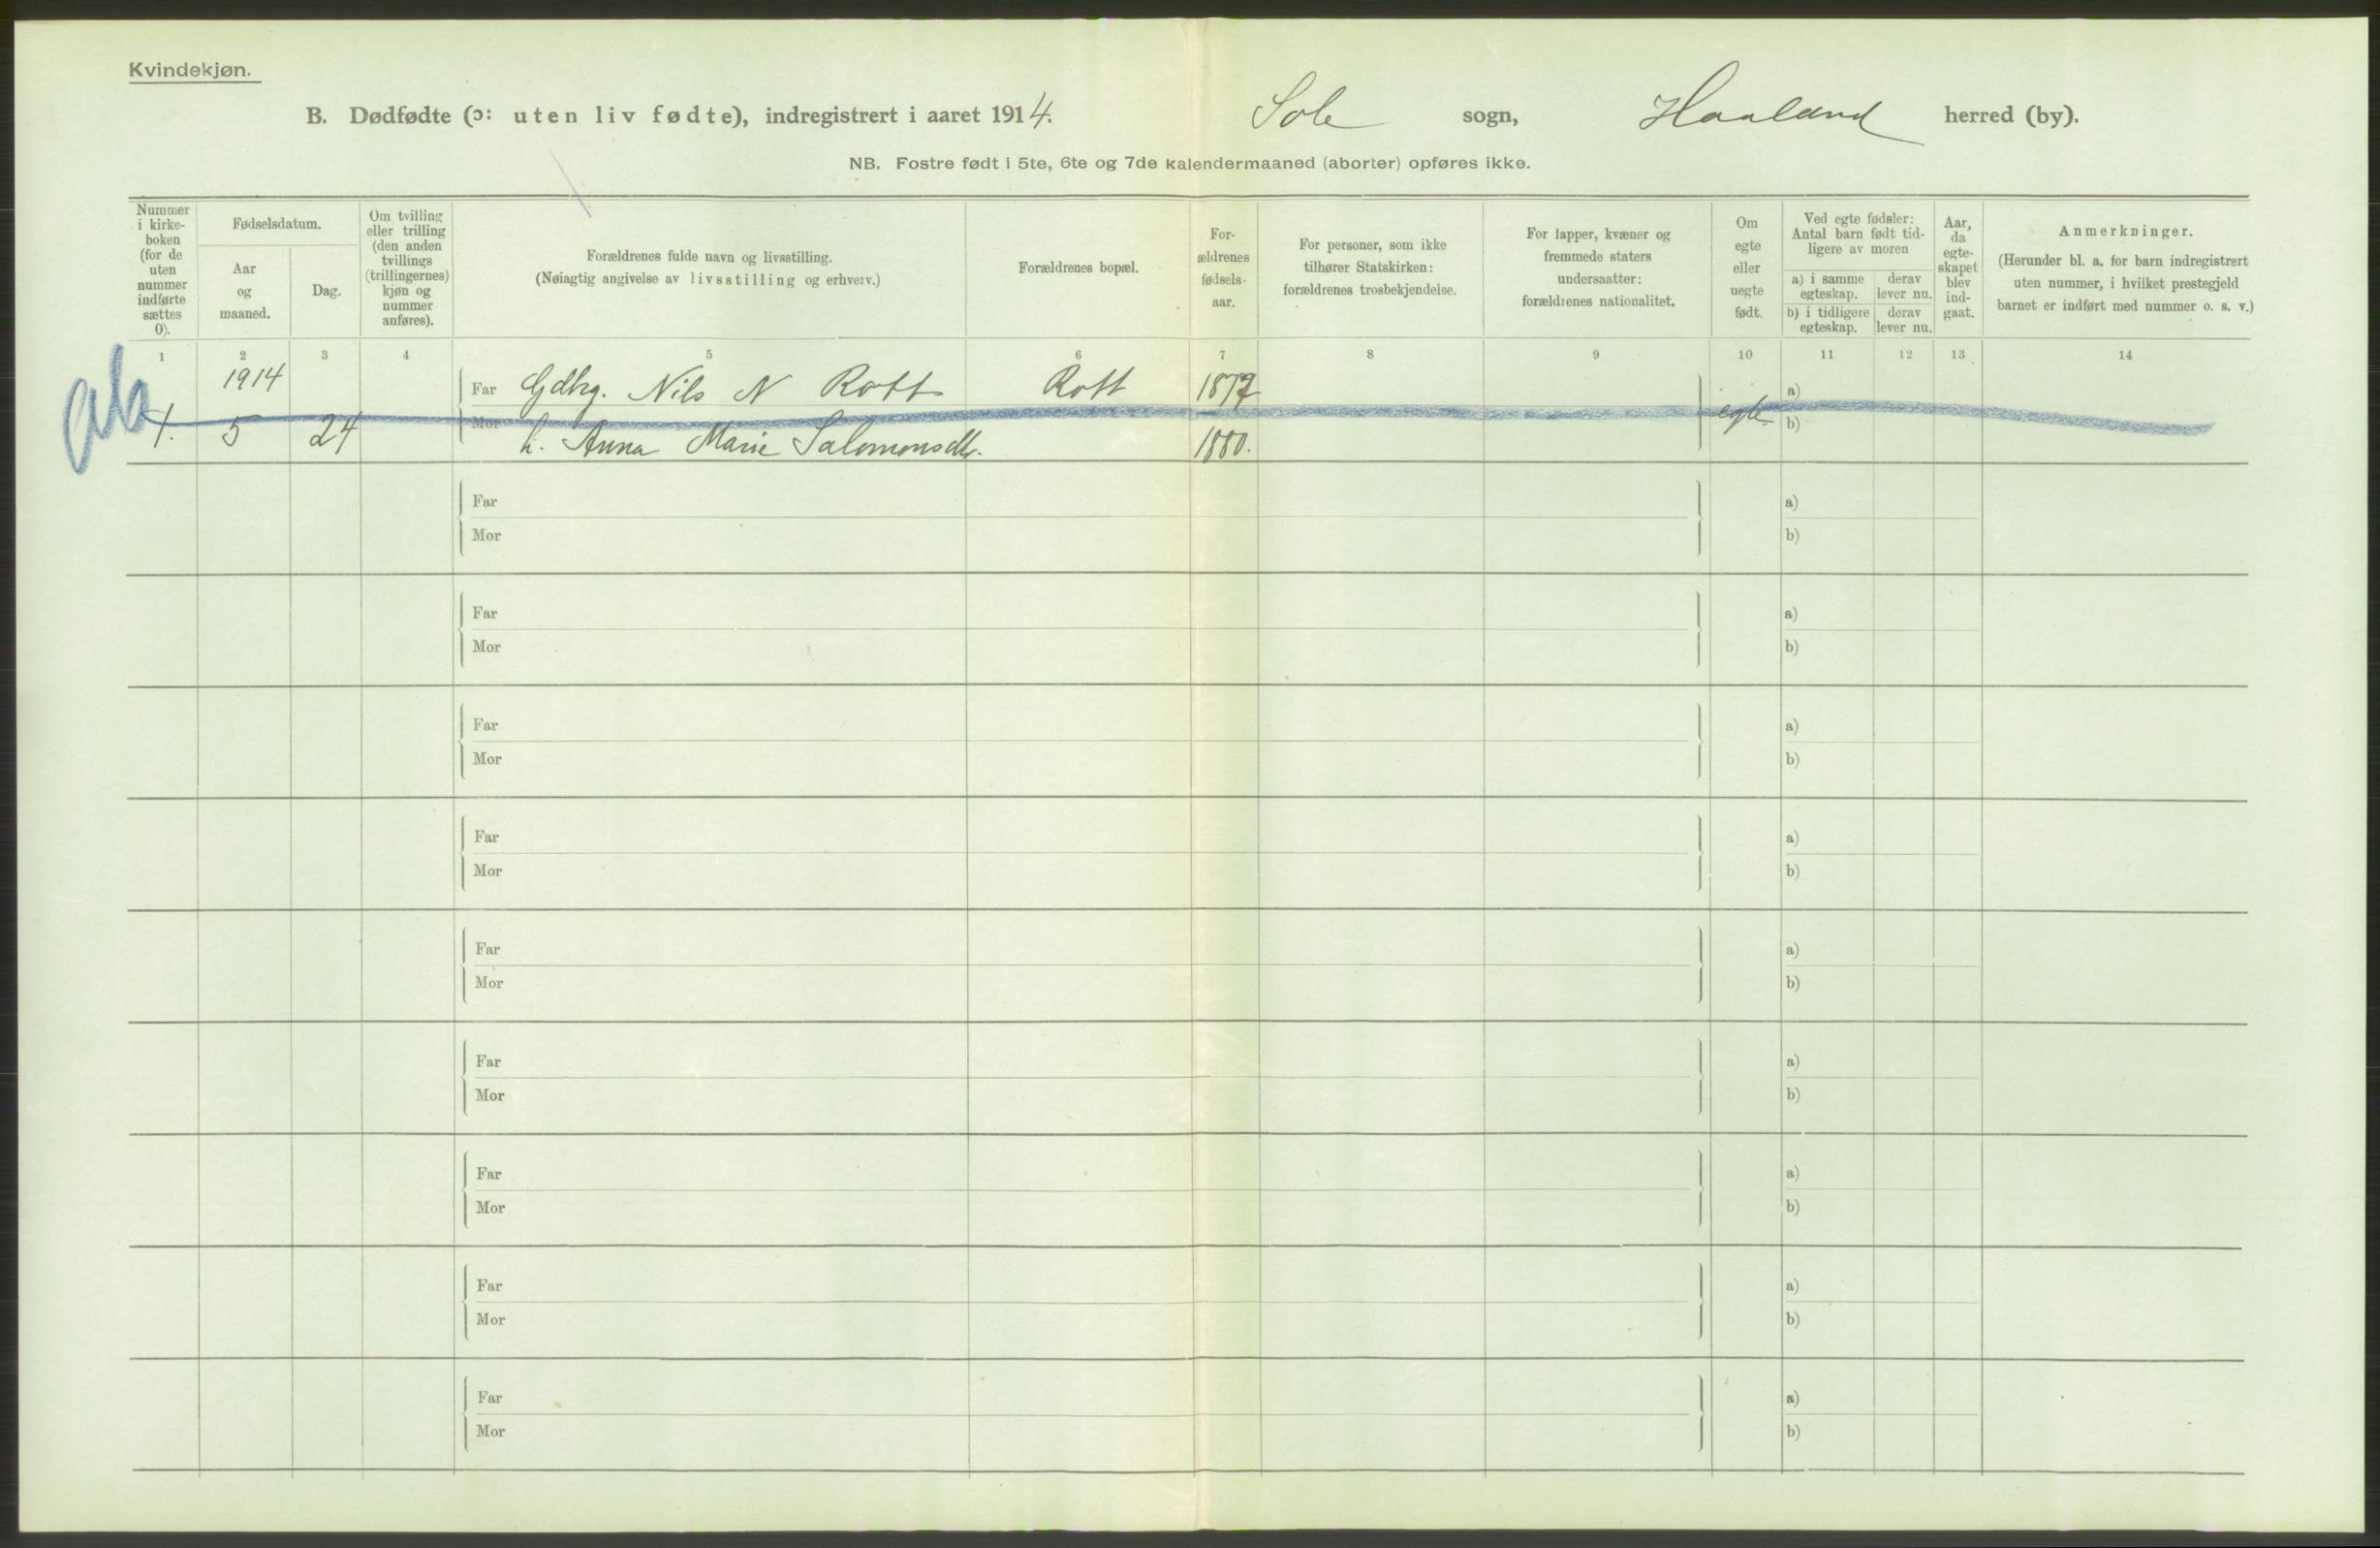 Kvindekjøn.
B. Dødfødte (ɔ: uten liv fødte), indregistrert i aaret 1914. Sole sogn, Haaland herred (by).
NB. Fostre født i 5te, 6te og 7de kalendermaaned (aborter) opføres ikke.
Nummer
i kirke-
boken
(for de
uten
nummer
indførte
sættes
0).
Fødselsdatum.
Aar
og
maaned.
Dag.
Om tvilling
eller trilling
(den anden
tvillings
(trillingernes)
kjøn og
nummer
anføres).
Forældrenes fulde navn og livsstilling.
(Nøiagtig angivelse av livsstilling og erhverv.)
Forældrenes bopæl.
For-
ældrenes
fødsels-
aar.
For personer, som ikke
tilhører Statskirken:
forældrenes trosbekjendelse.
For lapper, kvæner og
fremmede staters
undersaatter:
forældrenes nationalitet.
Om
egte
eller
uegte
født.
Ved egte fødsler:
Antal barn født tid-
ligere av moren
a) i samme
egteskap.
derav
lever nu.
b) i tidligere
egteskap.
derav
lever nu.
Aar,
da
egte-
skapet
blev
ind-
gaat.
Anmerkninger.
(Herunder bl. a. for barn indregistrert
uten nummer, i hvilket prestegjeld
barnet er indført med nummer o. s. v.)
1 2 3 4 5 6 7 8 9 10 11 12 13 14
1914 Far Gdbrg. Nils N Rott Rott a)
1. 5 24 Mor h. Anna Marie Salomonsdtr. 1880. egte b)
Far a)
Mor b)
Far a)
Mor b)
Far a)
Mor b)
Far a)
Mor b)
Far a)
Mor b)
Far a)
Mor b)
Far a)
Mor b)
Far a)
Mor b)
Far a)
Mor b)